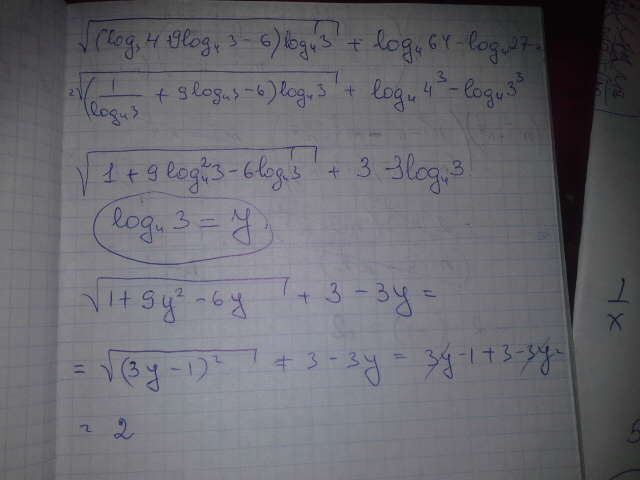 √((log₃4+9log₄3-6)log₄3) + log₄64-log₄27=
²√((1/log₄3 + 9log₄3-6)log₄3) + log₄4³-log₄3³
√(1+9log²₄3-6log₄3) + 3-3log₄3
log₄3=y
√(1+9y²-6y) + 3-3y=
=√((3y-1)²) + 3-3y = 3y-1+3-3y=
= 2
1/x
5